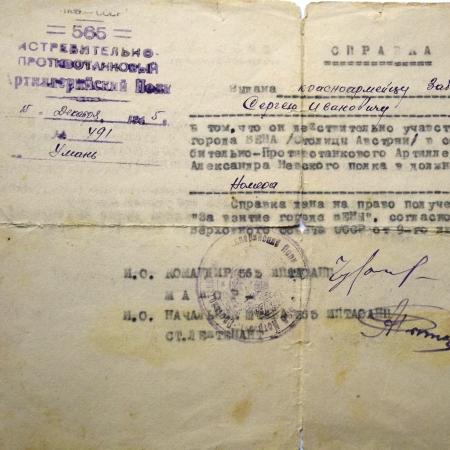 НКО СССР
565
ИСТРЕБИТЕЛЬНО-
ПРОТИВОТАНКОВЫЙ
Артиллерийский Полк
15 Декабря 1945 г.
№ 491
Умань
СПРАВКА
Выдана красноармейцу Заб
Сергею Ивановичу
в том, что он действительно участв
города ВЕНА /Столицы Австрии/ в со
бительно-Противотанкового Артилле
Александра Невского полка в должн
Номера
Справка дана на право получе
"За взятие города ВЕНЫ", согласно
Верховного Совета СССР от 9-го
И.О. КОМАНДИР 565 ИПТАЗАНП
МАЙОР
И.О. НАЧАЛЬ ШТАБА 565 ИПТАЗАНП
СТ. ЛЕЙТЕНАНТ